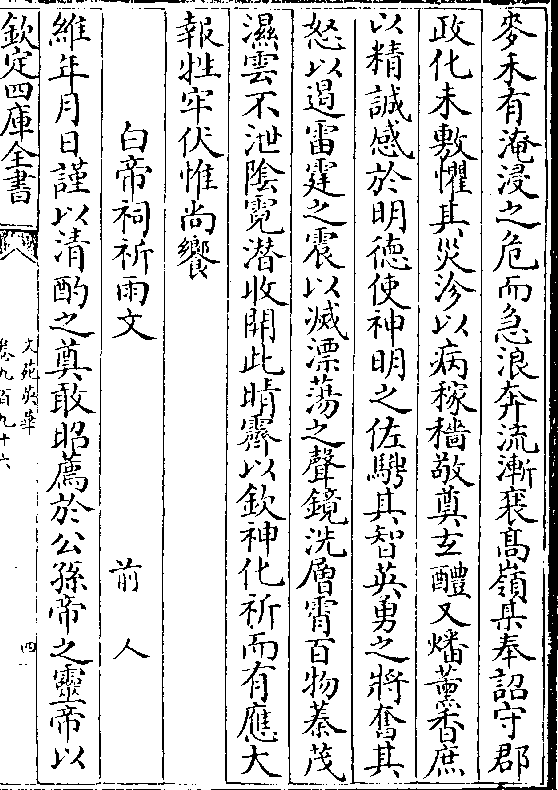 麥禾有淹浸之危而急浪奔流漸襄髙嶺某奉詔守郡
政化未敷懼其災沴以病稼穡敬奠玄醴又燔薰香庶
以精誠感於明德使神明之佐騁其智英勇之將奮其
怒以遏雷霆之震以滅漂蕩之聲鏡洗層霄百物蓁茂
濕雲不泄陰霓潜收開此晴霽以欽神化祈而有應大
報牲牢伏惟尚饗
白帝祠祈雨文 前人
維年月日謹以清酌之奠敢昭薦於公孫帝之靈帝以
欽定四庫全書
文苑英華
卷九百九十六
四